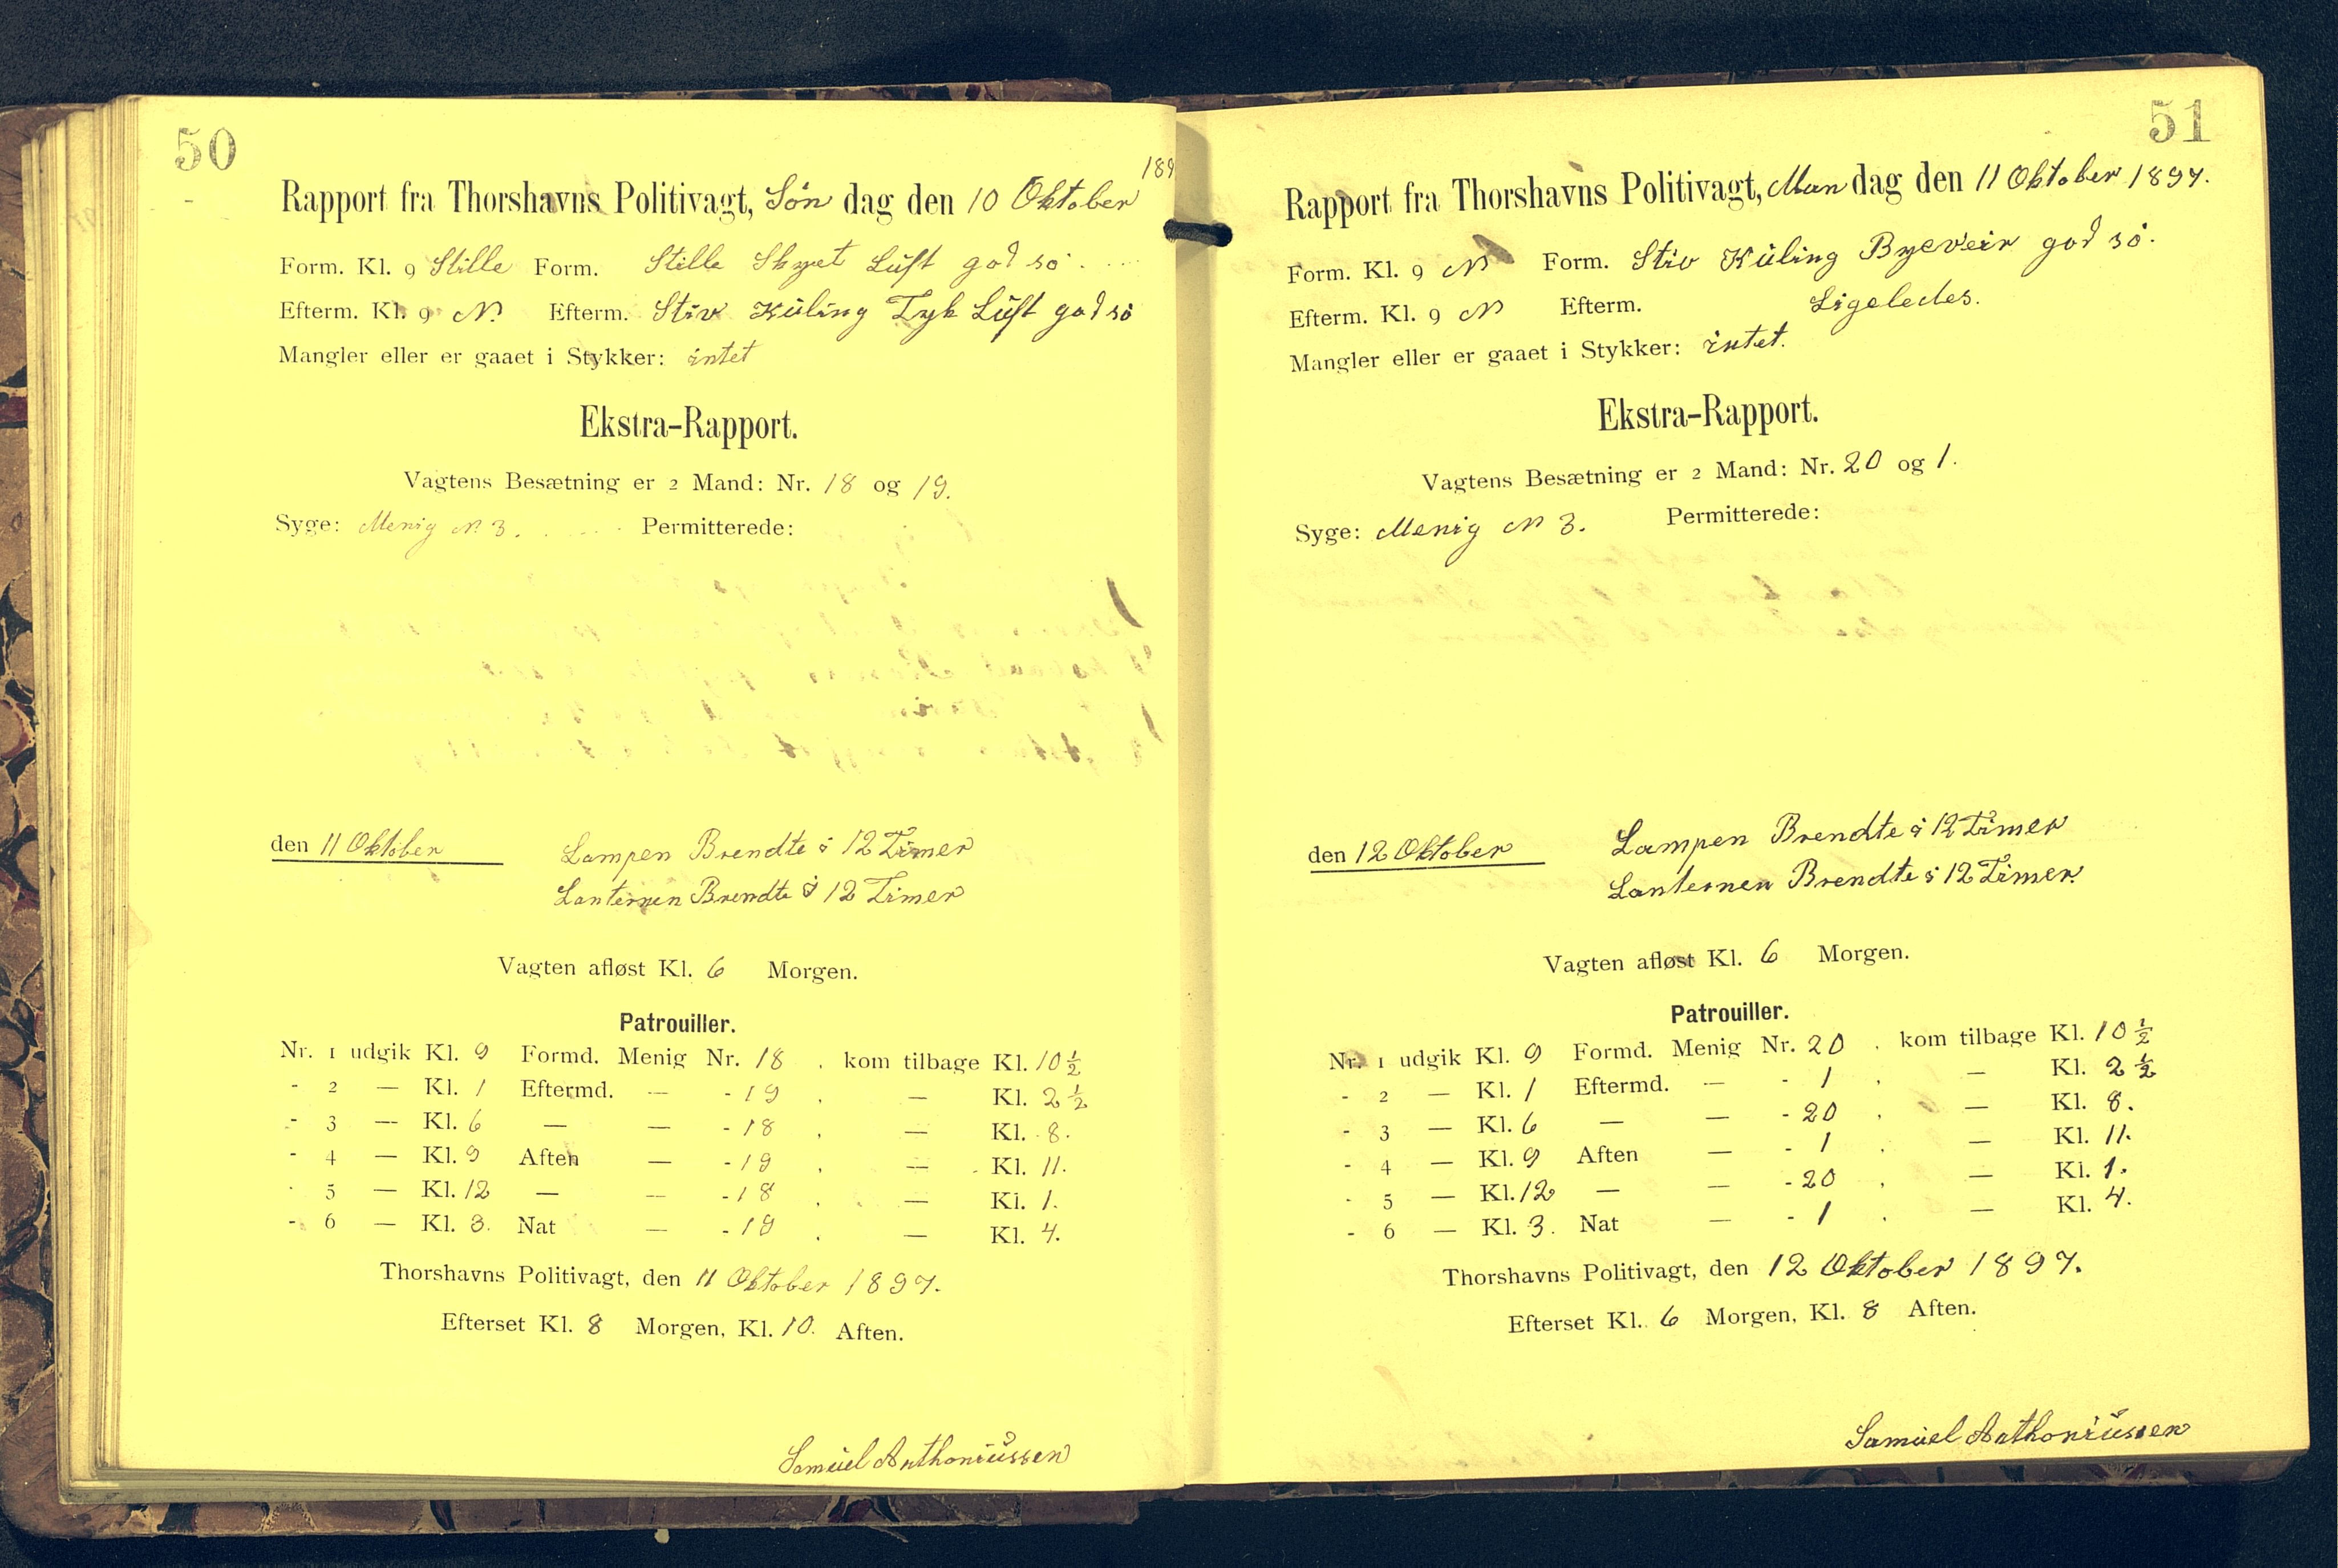 50
189
Rapport fra Thorshavns Politivagt, Søn dag den 10 Oktober
Form. Kl. 9 Stille Form. Stille Skyet Luft god sø.
Efterm. Kl. 9 N. Efterm. Stiv Kuling Tyk Luft god sø
Mangler eller er gaaet i Stykker: intet
Ekstra-Rapport.
Vagtens Besætning er 2 Mand: Nr. 18 og 19.
Syge: Menig N. 3. Permitterede:
den 11 Oktober Lampen Brendte i 12 Timer
Lanternen Brendte i 12 Timer
Vagten afløst Kl. 6 Morgen.
Patrouiller.
Nr. 1 udgik Kl. 9 Formd. Menig Nr. 18 . kom tilbage Kl. 10 ½
- 2 — Kl. 1 Eftermd. — - 19 . — Kl. 2 ½
- 3 — Kl. 6 — — - 18 . — Kl. 8.
- 4 — Kl. 9 Aften — - 19 . — Kl. 11.
- 5 — Kl. 12 — — - 18 . — Kl. 1.
- 6 — Kl. 3. Nat — - 19 . — Kl. 4.
Thorshavns Politivagt, den 11 Oktober 1897.
Efterset Kl. 8 Morgen, Kl. 10. Aften.
Samuel Anthoniussen
51
Rapport fra Thorshavns Politivagt, Man dag den 11 Oktober 1897.
Form. Kl. 9 N Form. Stiv Kuling Byeveir god sø.
Efterm. Kl. 9 N Efterm. Ligeledes.
Mangler eller er gaaet i Stykker: intet.
Ekstra-Rapport.
Vagtens Besætning er 2 Mand: Nr. 20 og 1.
Syge: Menig N 3. Permitterede:
den 12 Oktober Lampen Brendte i 12 Timer
Lanternen Brendte i 12 Timer.
Vagten afløst Kl. 6 Morgen.
Patrouiller.
Nr. 1 udgik Kl. 9 Formd. Menig Nr. 20 . kom tilbage Kl. 10 ½
- 2 — Kl. 1 Eftermd. — - 1 . — Kl. 2 ½
- 3 — Kl. 6 — — - 20 . — Kl. 8.
- 4 — Kl. 9 Aften — - 1 . — Kl. 11.
- 5 — Kl. 12 — — - 20 . — Kl. 1.
- 6 — Kl. 3. Nat — - 1 . — Kl. 4.
Thorshavns Politivagt, den 12 Oktober 1897.
Efterset Kl. 6 Morgen, Kl. 8 Aften.
Samuel Anthoniussen